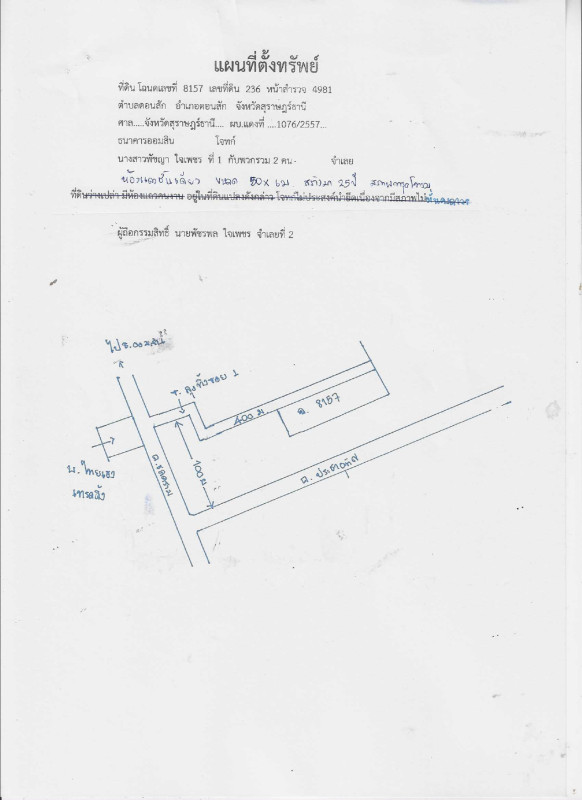 แผนที่ตั้งทรัพย์
ที่ดิน โฉนดเลขที่ 8157 เลขที่ดิน 236 หน้าสำรวจ 4981
ตำบลดอนสัก อำเภอดอนสัก จังหวัดสุราษฎร์ธานี
ศาล.....จังหวัดสุราษฎร์ธานี.... ผบ.แดงที่ ....1076/2557...
ธนาคารออมสิน โจทก์
นางสาวพัชญา ใจเพชร ที่ 1 กับพวกรวม 2 คน- จำเลย
ห้องแถวชั้นเดียว ขนาด 50 x สร้างมา 25 ปี สภาพ
ที่ดินว่างเปล่า มีห้องแถวคนงาน อยู่ในที่ดินแปลงดังกล่าว โจทก์ไม่ประสงค์นำยึดเนื่องจากมีสภาพไม่
ผู้ถือกรรมสิทธิ์ นายพัชรพล ใจเพชร จำเลยที่ 2
ไป
ซ. ซอย 1
400 ม
ฉ. 8157
100 ม
ถ.
ถ. ประชาอุทิศ